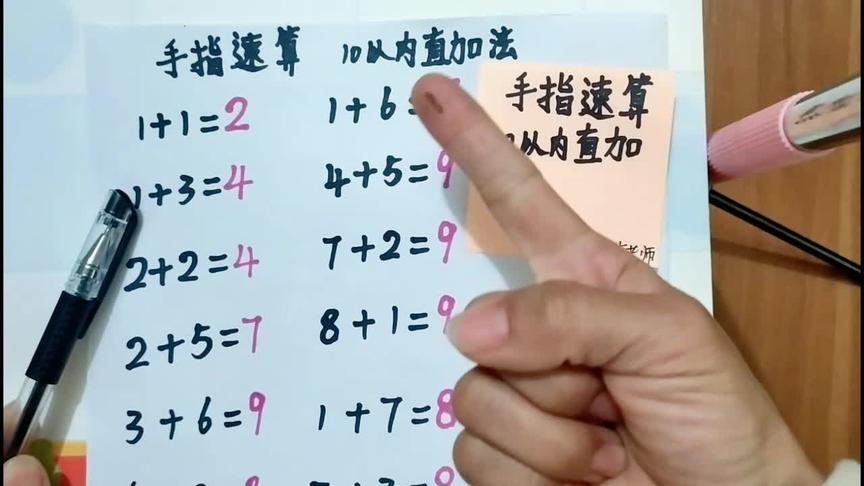 手指速算 10以内直加法
1+1=2
1+6=
1+3=4
4+5=9
2+2=4
7+2=9
2+5=7
8+1=9
3+6=9
1+7=8
手指速算
以内直加
老师